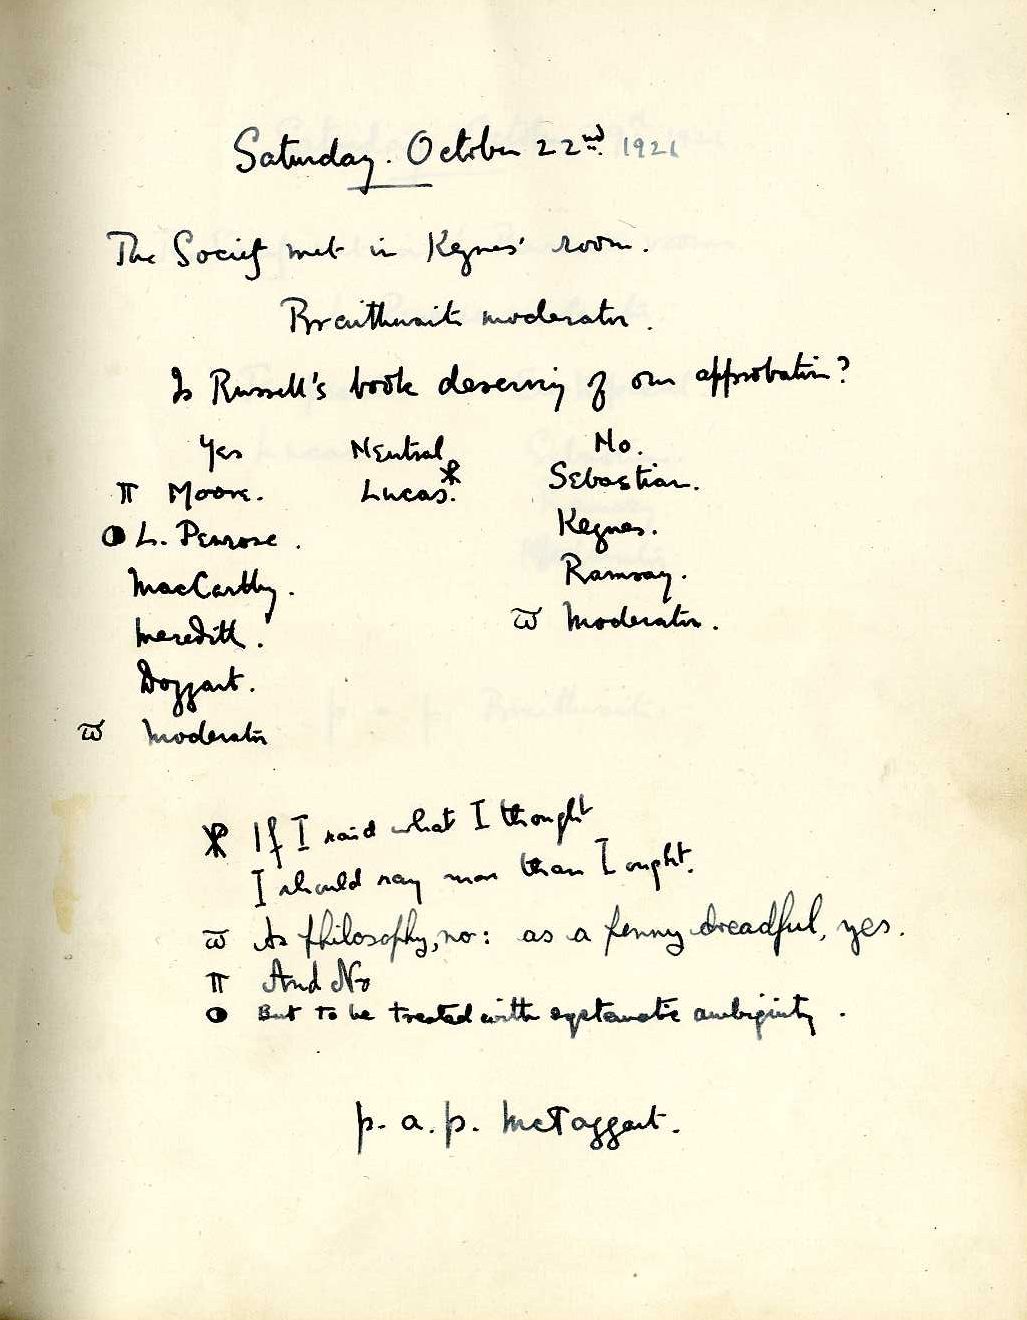 Saturday. October 22nd. 1921
The Society met in Keynes' room.
Braithwaite moderator.
Is Russell's book deserving of our approbation?
Yes Neutral No.
π Moore. Lucas. Sebastian.
◑ L. Penrose. Keynes.
MacCarthy. Ramsay.
Meredith. ϖ Moderator.
Doggart.
ϖ Moderator
If I said what I thought
I should say more than I ought.
ϖ As philosophy, no: as a penny dreadful, yes.
π And No
◑ But to be treated with systematic ambiguity.
p. a. p. McTaggart.